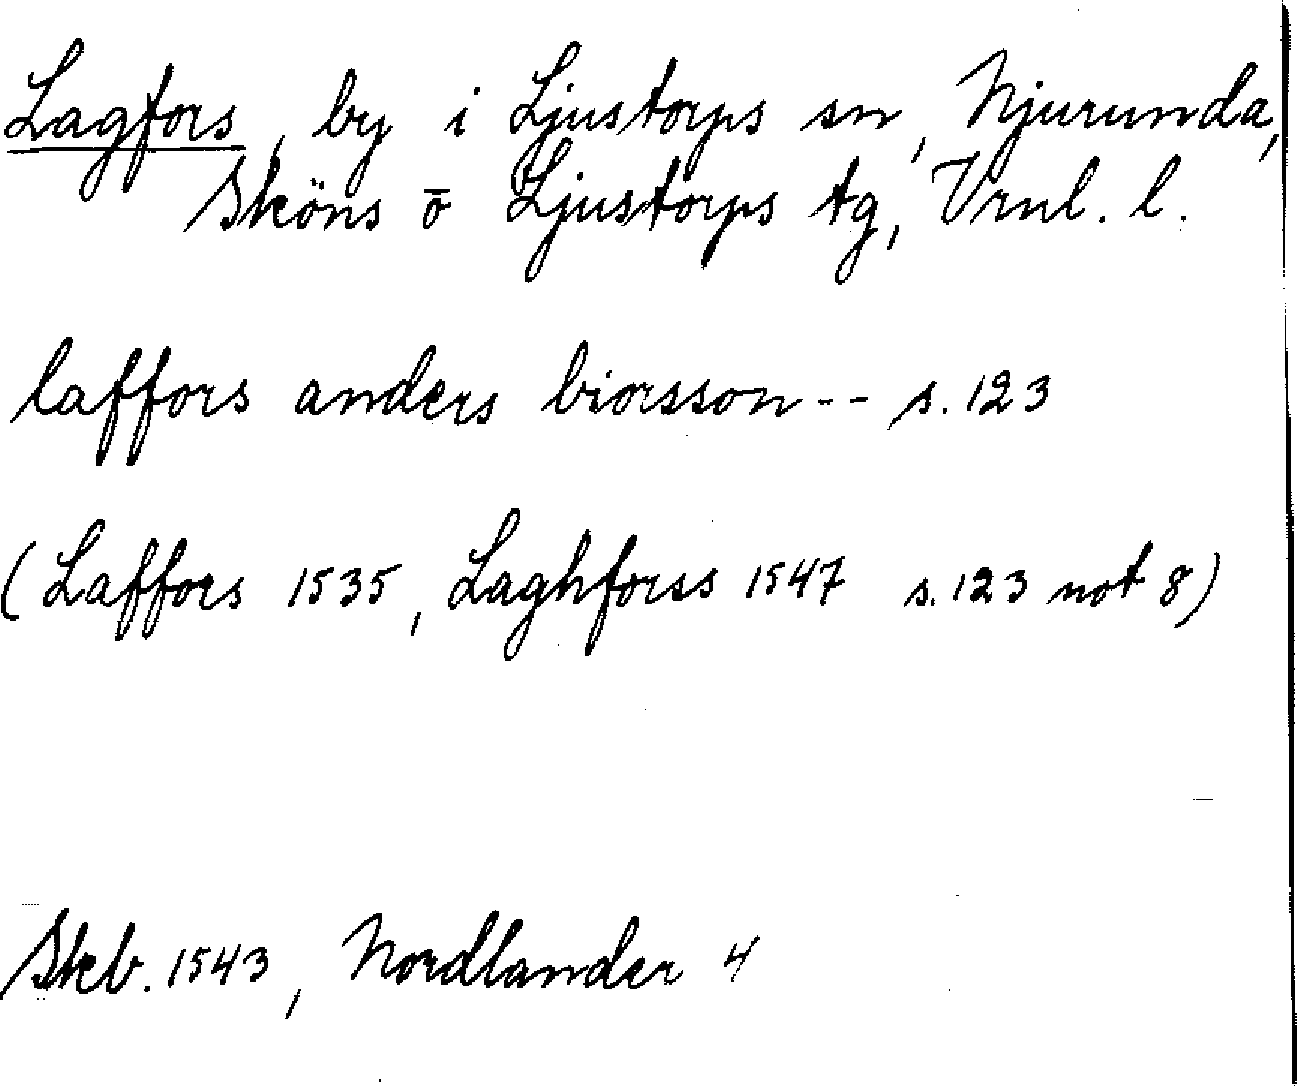 Lagfors, by i Ljustorps sn, Njurunda,
Sköns ō Ljustorps tg, Vrnl. l.
laffors anders biorsson -- s. 123
(Laffors 1535, Laghforss 1547 s. 123 not 8)
Skb. 1543, Nordlander 4